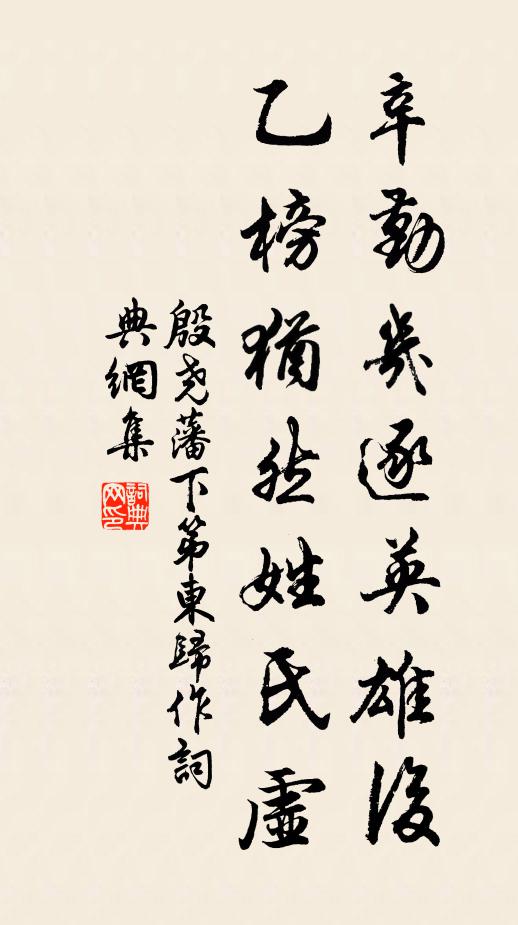 辛勤几逐英雄後
乙榜猶然姓氏虛
殷尧藩下第東歸作詞
典網集
詞典網印